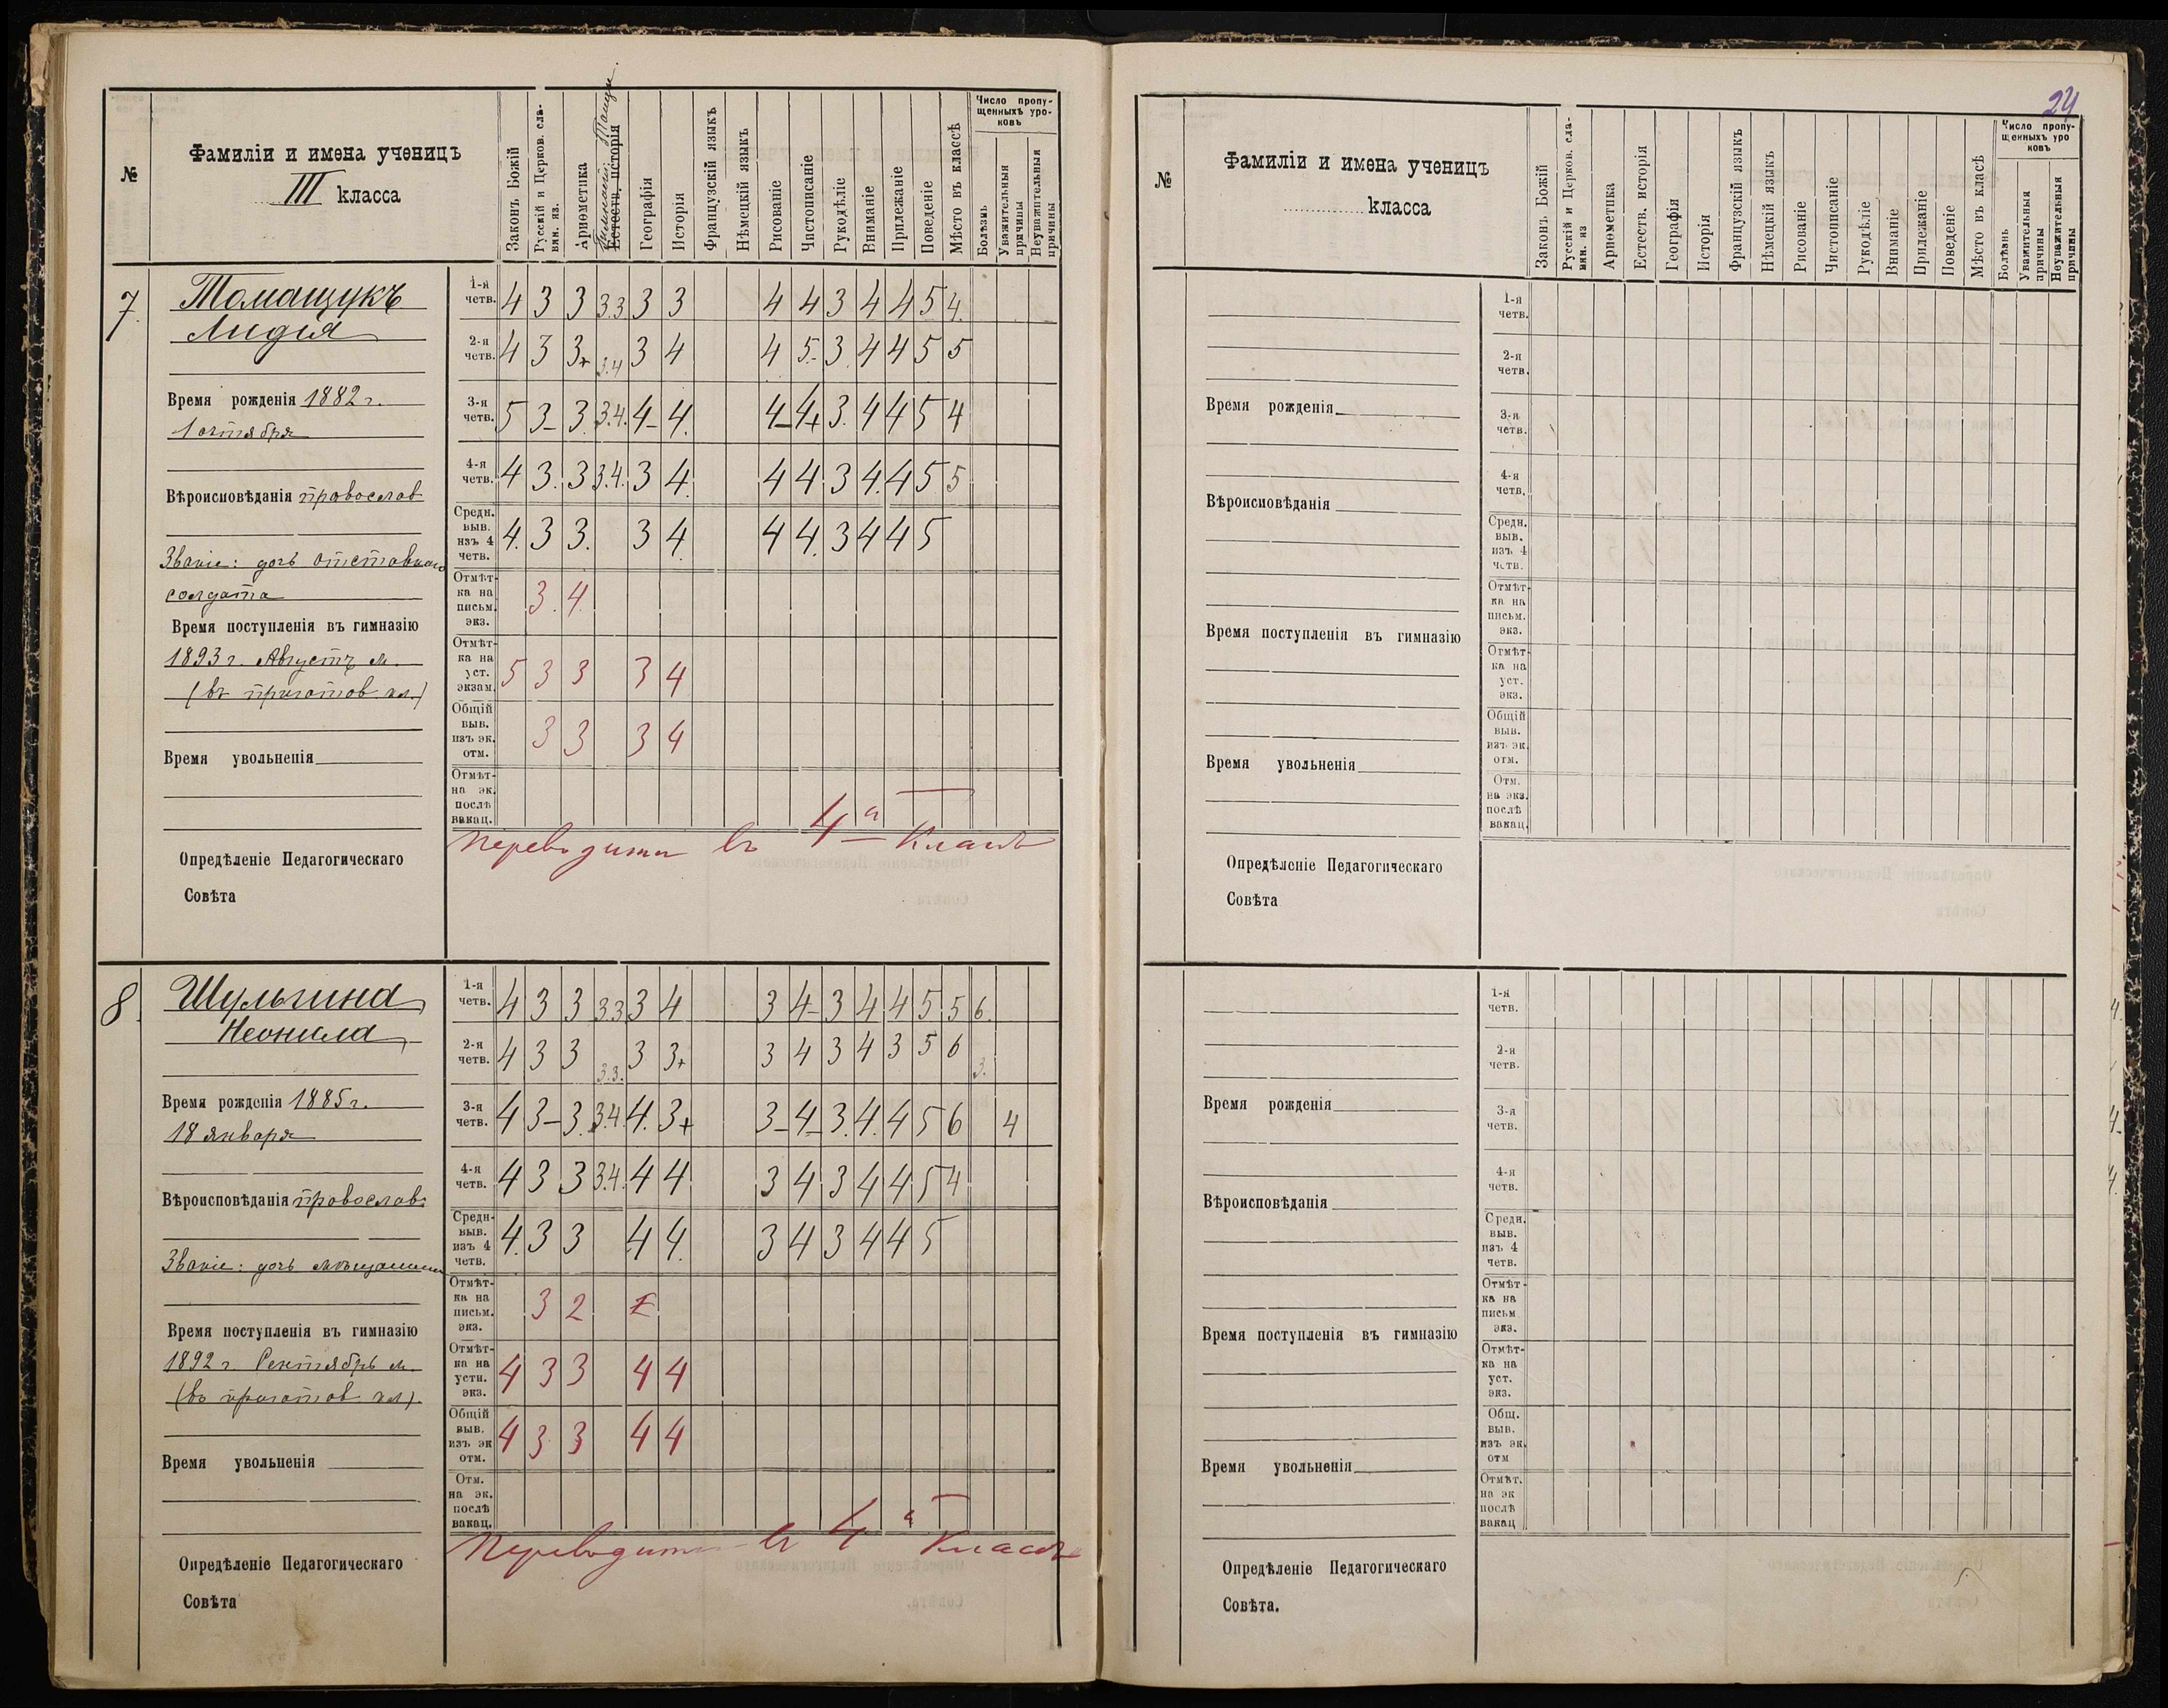 №
Фамиліи и имена ученицъ
III класса
Законъ Божій
Русскій и Церков. сла-
вян. яз.
Ариѳметика
Естеств. исторія
Географія
Исторія
Французскій языкъ
Нѣмецкій языкъ
Рисованіе
Чистописаніе
Рукодѣліе
Вниманіе
Прилежаніе
Поведеніе
Мѣсто въ классѣ
Число пропу-
щенныхъ уро-
ковъ
Болѣзнь
Уважительныя
причины
Неуважительныя
причины
7.
Томащукъ
Лидія
Время рожденія 1882 г.
1 октября
Вѣроисповѣданія православ
Званіе: дочь отставного
солдата
Время поступленія въ гимназію
1893 г. Августъ м.
(въ приготов кл.)
Время увольненія
Опредѣленіе Педагогическаго
Совѣта
1-я
четв. 4 3 3 3.3 3 3 4 4 3 4 4 5 4.
2-я
четв. 4 3 3+ 3.4 3 4 4 5- 3 4 4 5 5
3-я
четв. 5 3- 3. 3.4. 4- 4. 4- 4+ 3. 4 4 5 4
4-я
четв. 4 3. 3 3.4. 3 4. 4 4 3 4. 4 5 5
Средн.
выв.
изъ 4
четв. 4. 3 3. 3 4. 4 4. 3 4 4 5
Отмѣт-
ка на
письм.
экз. 3. 4.
Отмѣт-
ка на
уст.
экзам. 5 3 3 3 4
Общій
выв.
изъ эк.
отм. 3 3 3 4
Отмѣт-
на эк.
послѣ
вакац.
Переводити въ 4й Классъ
8.
Шульгина
Неонила
Время рожденія 1885 г.
18 января
Вѣроисповѣданія православ.
Званіе: дочь мѣщанина
Время поступленія въ гимназію
1892 г. Сентябрь м.
(въ приготов кл).
Время увольненія
Опредѣленіе Педагогическаго
Совѣта
1-я
четв. 4 3 3 3.3 3 4 3 4- 3 4 4 5 5 6.
2-я
четв. 4 3 3 3.3. 3 3+ 3 4 3 4 3 5 6 3.
3-я
четв. 4 3- 3. 3.4 4. 3+ 3- 4- 3. 4. 4 5 6 4
4-я
четв. 4 3 3 3.4. 4 4 3 4 3 4 4 5 4
Средн-
выв.
изъ 4
четв. 4. 3 3 4 4. 3 4 3 4 4 5
Отмѣт-
ка на
письм.
экз. 3 2
Отмѣт-
ка на
устн.
экз. 4 3 3 4 4
Общій
выв.
изъ эк
отм. 4 3 3 4 4
Отм.
на эк.
послѣ
вакац.
Переводити въ 4й Классъ
24
№
Фамиліи и имена ученицъ
класса
Законъ Божій
Русскій и Церков. сла-
вян. яз
Ариѳметика
Естеств. исторія
Географія
Исторія
Французскій языкъ
Нѣмецкій языкъ
Рисованіе
Чистописаніе
Рукодѣліе
Вниманіе
Прилежаніе
Поведеніе
Мѣсто въ класѣ
Число пропу-
щенныхъ уро
ковъ
Болѣзнь
Уважительныя
причины
Неуважительныя
причины
Время рожденія
Вѣроисповѣданія
Время поступленія въ гимназію
Время увольненія
Опредѣленіе Педагогическаго
Совѣта
1-я
четв.
2-я
четв.
3-я
четв.
4-я
четв.
Средн.
выв.
изъ 4
четв.
Отмѣт-
ка на
письм.
экз.
Отмѣт-
ка на
уст.
экз.
Общій
выв.
изъ эк.
отм.
Отм.
на экз.
послѣ
вакац.
Время рожденія
Вѣроисповѣданія
Время поступленія въ гимназію
Время увольненія
Опредѣленіе Педагогическаго
Совѣта.
1-я
четв.
2-я
четв.
3-я
четв.
4-я
четв.
Средн.
выв.
изъ 4
четв.
Отмѣт-
ка на
письм
экз.
Отмѣт-
ка на
уст.
экз.
Общ.
выв.
изъ эк.
отм
Отмѣт.
на эк
послѣ
вакац